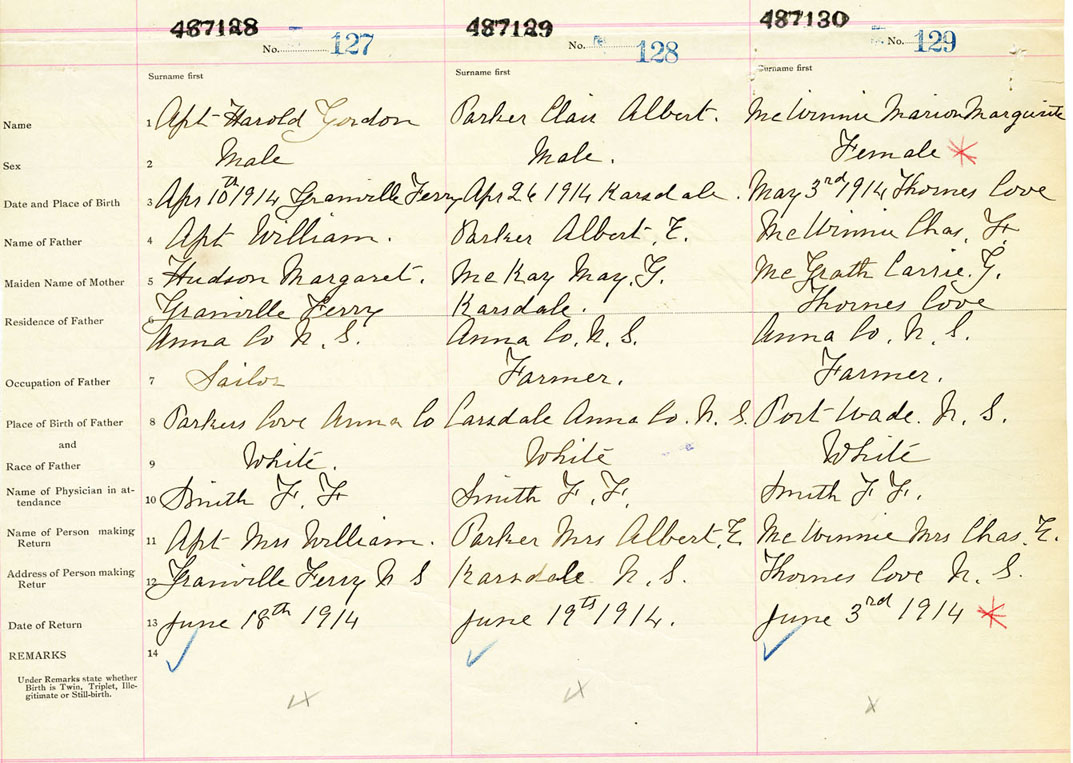 487128 487129 487130
No. 127 No. 128 No. 129
Surname first Surname first Surname first
Name 1 Apt Harold Gordon Parker Clair Albert. McWinnie Marion Marguirite
Sex 2 Male Male. Female
Date and Place of Birth 3 Apr 10th 1914 Granville Ferry Apr 26 1914 Karsdale. May 3rd 1914 Thornes Cove
Name of Father 4 Apt William. Parker Albert E. McWinnie Chas.
Maiden Name of Mother 5 Hudson Margaret. McKay May. G. McGrath Carrie. G.
Residence of Father 6 Granville Ferry Karsdale. Thornes Cove
Anna Co N. S. Anna Co. N. S. Anna Co. N. S.
Occupation of Father 7 Sailor Farmer. Farmer.
Place of Birth of Father 8 Parkers Cove Anna Co Carsdale Anna Co. N. S. Port Wade. N. S.
and
Race of Father 9 White. White White
Name of Physician in at-
tendance 10 Smith F. F. Smith F. F. Smith F F.
Name of Person making
Return 11 Apt Mrs William. Parker Mrs Albert E. McWinnie Mrs Chas. E.
Address of Person making
Retur 12 Granville Ferry N S Karsdale N. S. Thornes Cove N. S.
Date of Return 13 June 18th 1914 June 19th 1914. June 3rd 1914
REMARKS 14
Under Remarks state whether
Birth is Twin, Triplet, Ille-
gitimate or Still-birth.